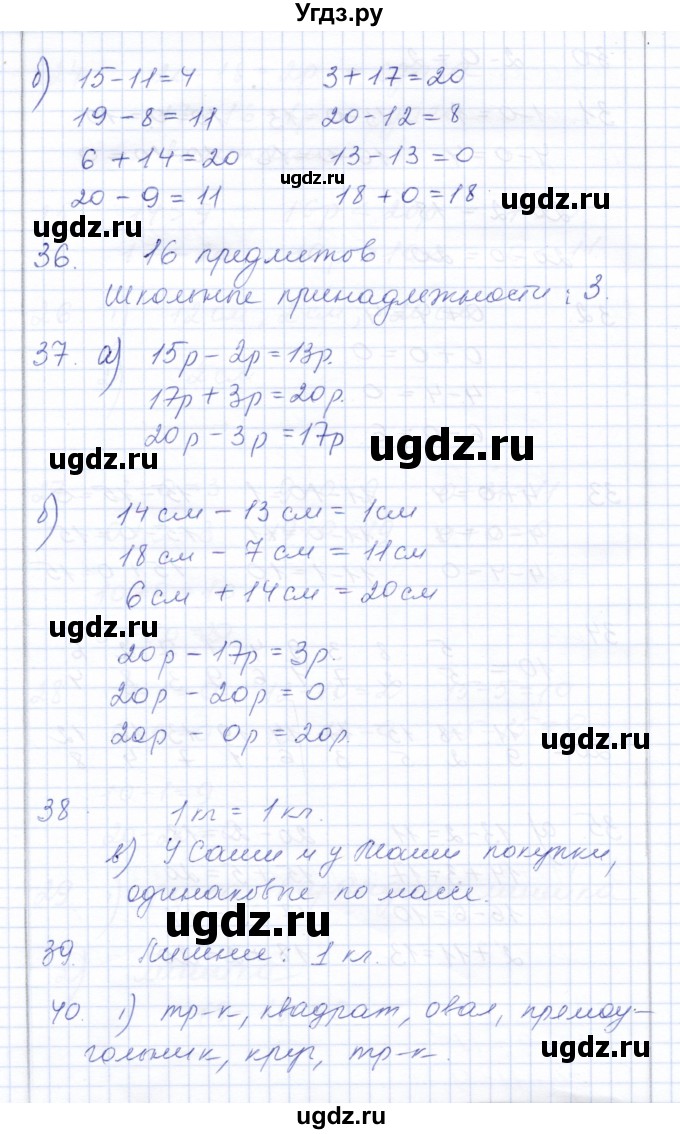 Угдз.ру
б) 15-11=4 3+17=20
19-8=11 20-12=8
6+14=20 13-13=0
ugdz.ru
20-9=11 18+0=18
ugdz.ru
ugdz.ru
36. 16 предметов
Школьные принадлежности: 3.
37. а) 15р-2р=13р.
17р+3р=20р.
20р-3р=17р
ugdz.ru
ugdz.ru
б) 14см-13см=1см
18см-7см=11см
6см+14см=20см
ugdz.ru
20р-17р=3р.
20р-20р=0
20р-0р=20р.
ugdz.ru
38 1кг=1кг.
в) У Саши и у Маши покупки,
одинаковые по массе.
ugdz.ru
39. Лишние: 1 кг.
40. 1) тр-к, квадрат, овал, прямоу-
гольник, круг, тр-к.
ugdz.ru
ugdz.ru